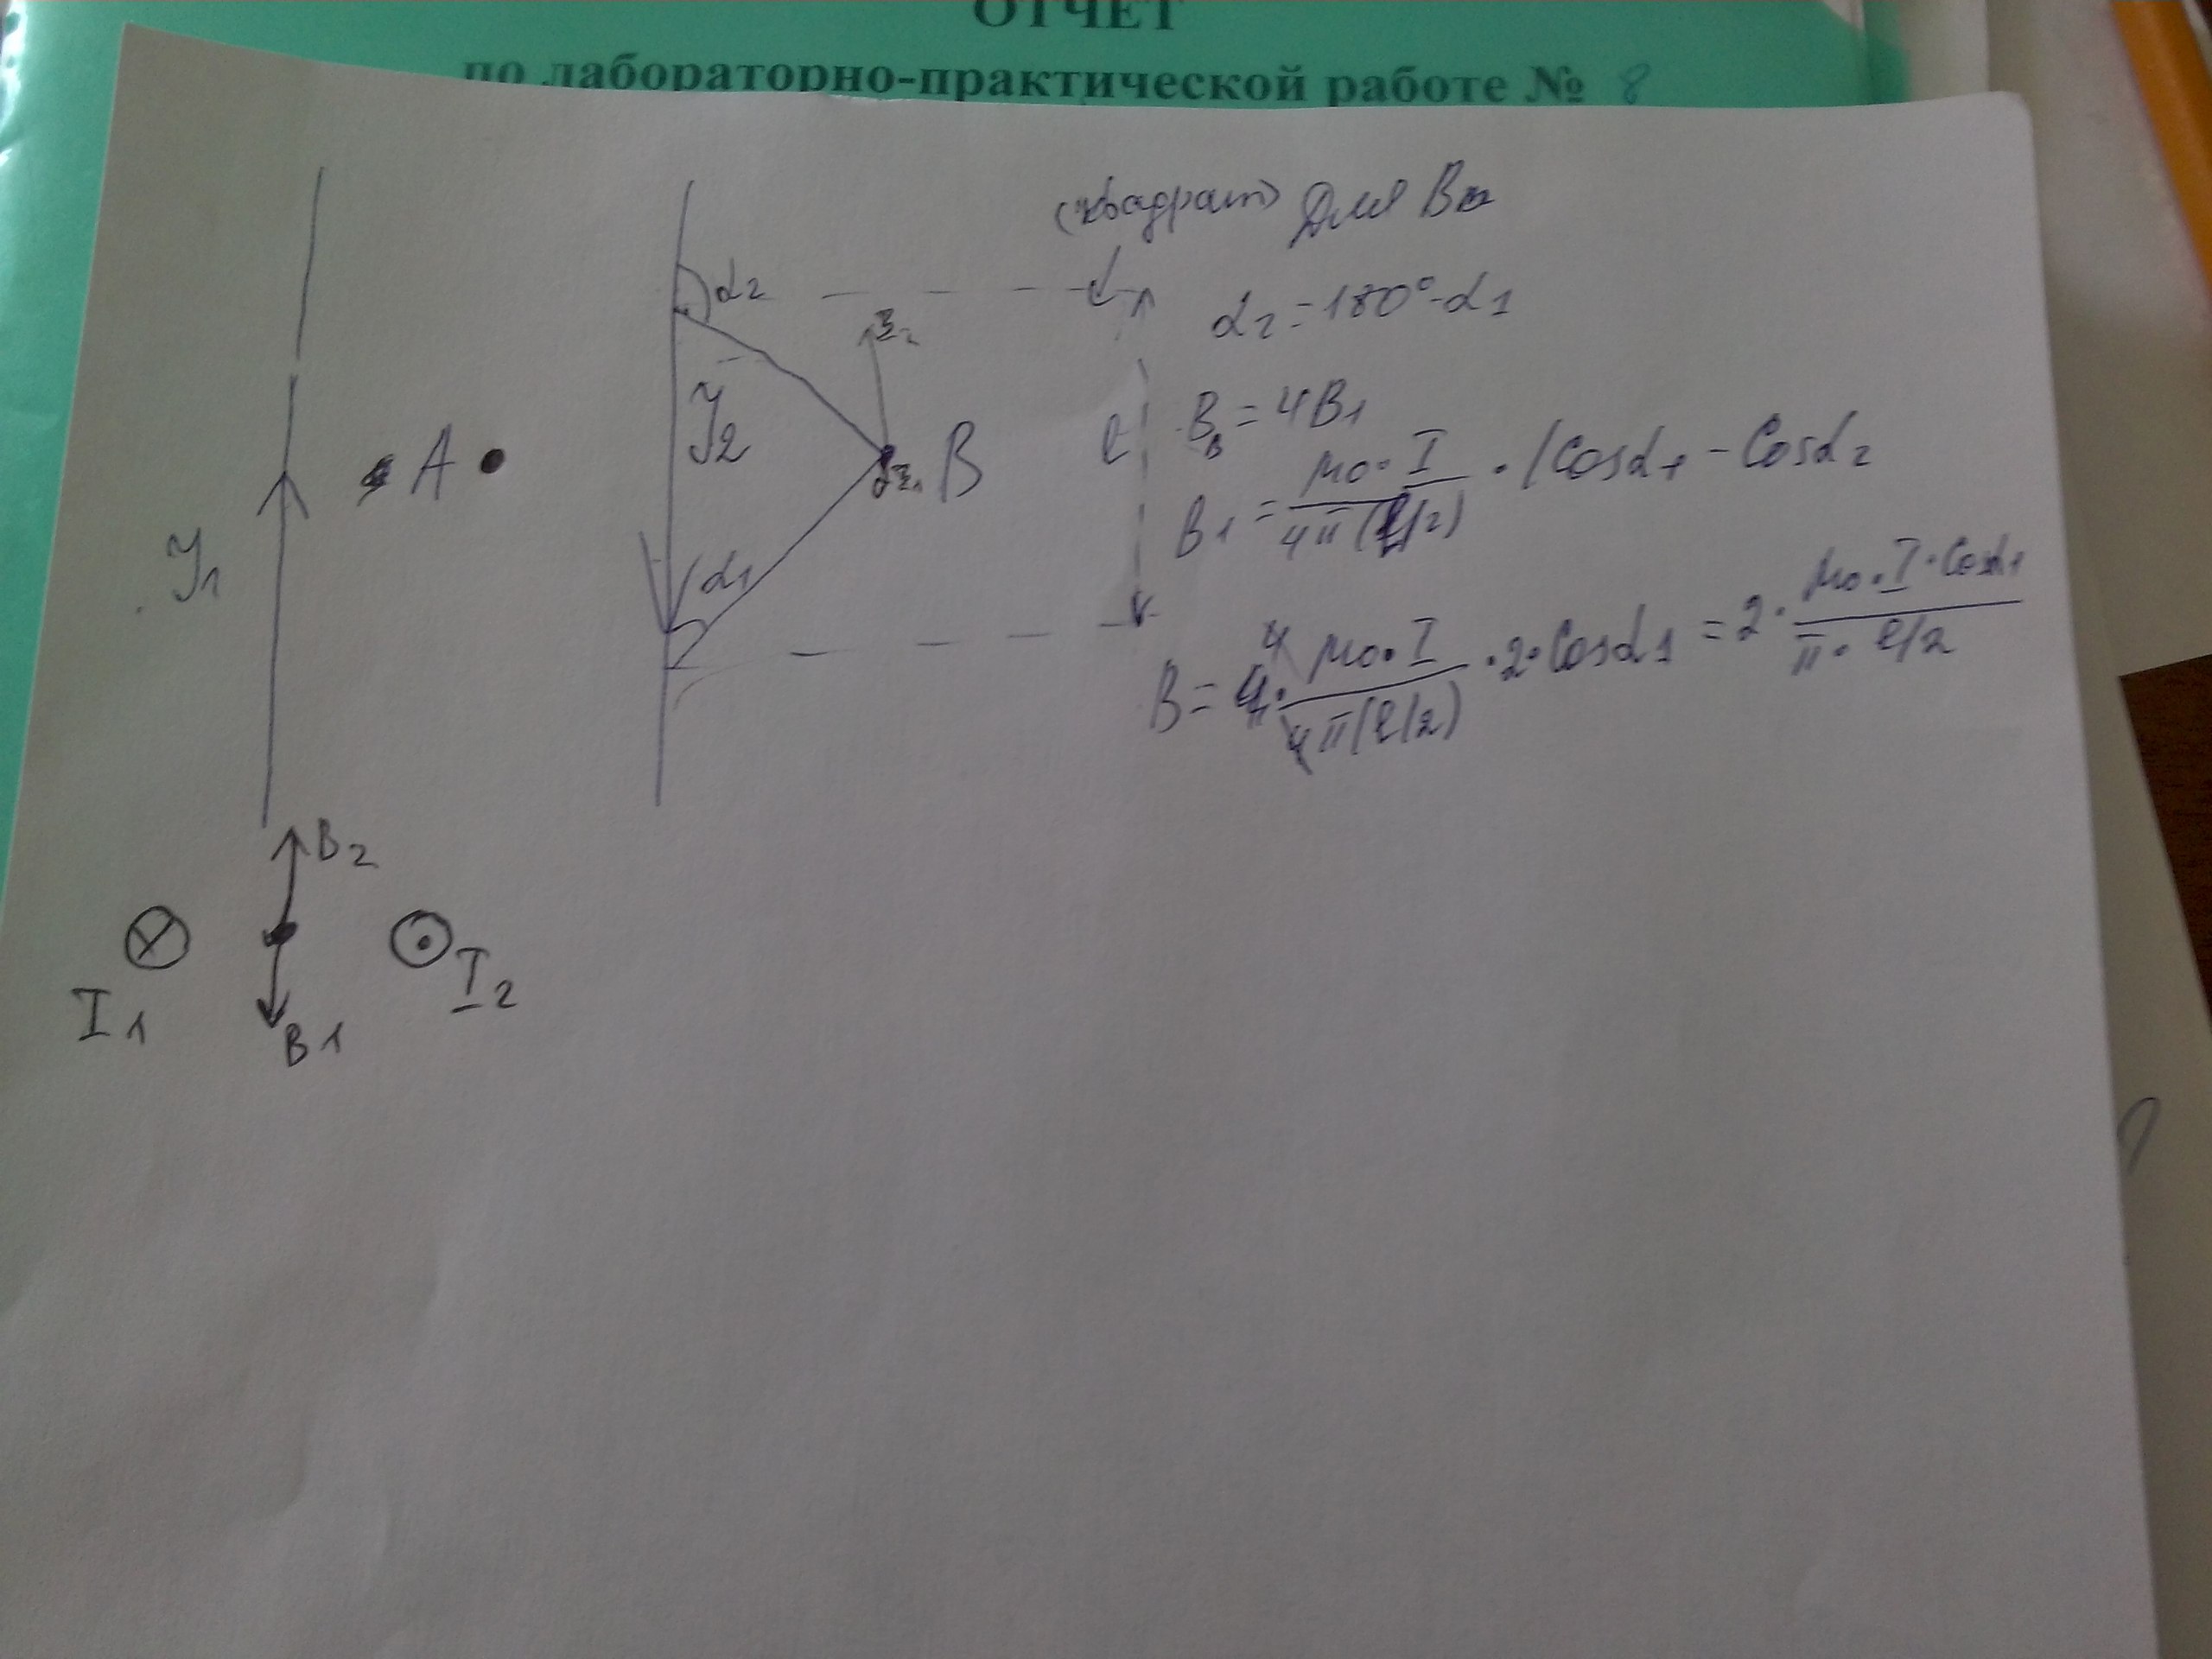 ОТЧЕТ
по лабораторно-практической работе № 8
(квадрат) Для B
α2
α2 = 180° - α1
J2
A
B
l
Bв = 4B1
B1 = μ0 · I / 4π(l/2) · (Cosα1 - Cosα2
J1
α1
B = 4 · μ0 · I / 4π(l/2) · 2 · Cosα1 = 2 · μ0 · I · Cosα1 / π · l/2
B2
I1
I2
B1